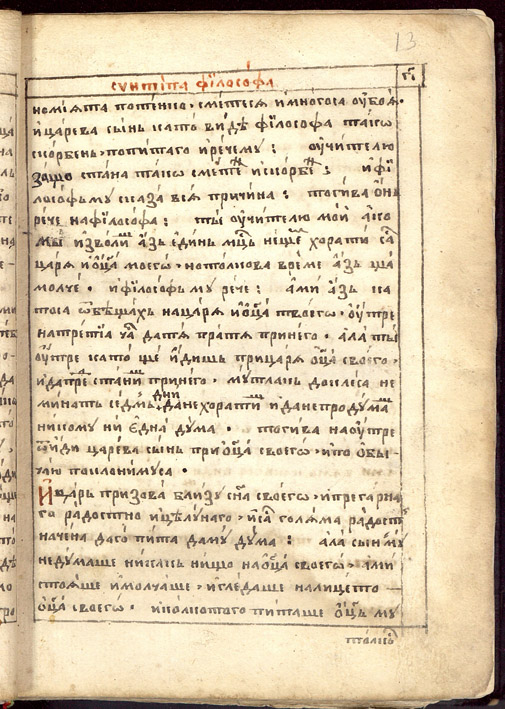 13
сѵнтїпа фїлософа
гі
немїѧта потѣнко · смѣтесѧ имногоса оубоѧ ·
ицарева сынь като видѣ фїлософа такѡ
скорбень · попитаго иречему : оучителю
защо стана такѡ смѣтен искорбен : ифї
лософьму сказа всїѧ причина : тогива ѡн
рече нафїлософа : ты оучителю мой ако
мы изволиш азь единь мцⷭь нещем хорати са
царѧ иѡца моегѡ · нотолкова време азь ща
молчє · ифїлософь му рече : ами азь ка
тоса ѡбѣщахь нацарѧ иѡца твоегѡ · оутре
натретїѧ ча датѧ пратѧ принего · ала ты
оутре като ще идишь прицарѧ ѡца своего ·
идатре станиш принего · мутлакь доклеса не
минать седмь дни данехоратиш иданепродумаш
никому ни една дума · тогива наоутре
ѿиди царева сынь при ѡца своегѡ · ипо обы
чаю поклонимуса ·
Ицарь призова близу сна своегѡ · ипрегарна
го радостно ицѣлунаго · иса голѧма радост
начена даго пита даму дума : ала сынму
недумаше никакь нищо наѡца своегѡ · ами
стоѧше имолчаше · игледаше налицето
ѡца своегѡ · иколкотаго питаше ѡць му
толков